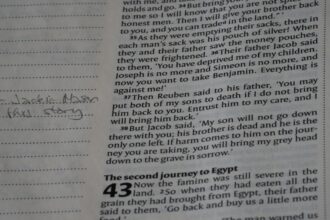 with me, and
holds and go. ³⁴But bring your
to me so I will know that you are not spies
honest men. Then I will give your brother back
to you, and you can trade in the land.'"
³⁵As they were emptying their sacks, there in
each man's sack was his pouch of silver! When
they and their father saw the money pouches,
they were frightened. ³⁶Their father Jacob said
to them, 'You have deprived me of my children.
Joseph is no more and Simeon is no more, and
now you want to take Benjamin. Everything is
against me!'
³⁷Then Reuben said to his father, 'You may
put both of my sons to death if I do not bring
him back to you. Entrust him to my care, and I
will bring him back.'
³⁸But Jacob said, 'My son will not go down
there with you; his brother is dead and he is the
only one left. If harm comes to him on the jour-
ney you are taking, you will bring my grey head
down to the grave in sorrow.'
The second journey to Egypt
43 Now the famine was still severe in the
land. ²So when they had eaten all the
grain they had brought from Egypt, their father
said to them, 'Go back and buy us a little more
story